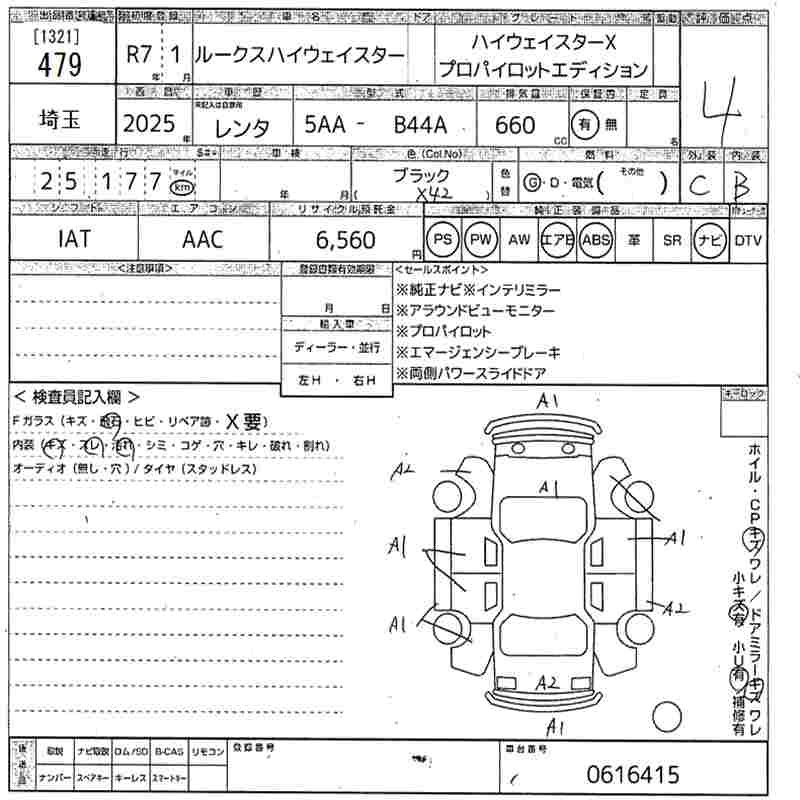 出品番号
初度登録 車名 ドア グレード 駆動 評価点
[1321]
479
R7 年 1 月
ルークスハイウェイスター
ハイウェイスターX
プロパイロットエディション
4
車歴 型式 排気量 保証書 定員
埼玉
2025 年
レンタ
5AA - B44A
660 cc
有 無
名
走行 車検 色 (Col No) 燃料 外装 内装
25177 マイル km
年 月
ブラック
( X42 )
色替
G・D・電気( その他 )
C
B
シフト エアコン リサイクル預託金 純正装備品
IAT
AAC
6,560 円
PS PW AW エアB ABS 革 SR ナビ DTV
<注意事項>
登録書類有効期限
月 日
輸入車
ディーラー・並行
左H ・ 右H
<セールスポイント>
※純正ナビ※インテリミラー
※アラウンドビューモニター
※プロパイロット
※エマージェンシーブレーキ
※両側パワースライドドア
< 検査員記入欄 >
Fガラス (キズ・飛石・ヒビ・リペア跡・X要)
内装 (キズ・スレ・汚れ・シミ・コゲ・穴・キレ・破れ・割れ)
オーディオ (無し・穴) / タイヤ (スタッドレス)
キーロック
A1
A2
A1
A1
A1
A1
A2
A2
A1
ホイル・CPキズ/ワレ/ドアミラーキズワレ
小キズ有 小U有/補修有
後送品
取説 ナビ取説 ロム/SD B-CAS リモコン
ナンバー スペアキー キーレス スマートキー
登録番号
車台番号
0616415